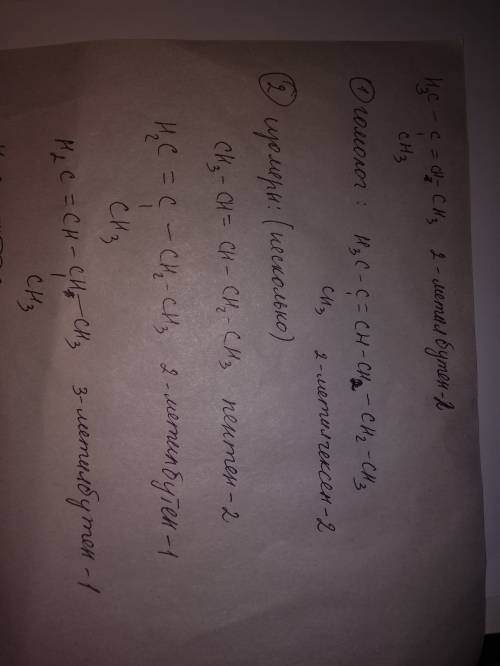 H₃C – C = CH – CH₃ 2-метилбутен-2
CH₃
① гомолог : H₃C – C = CH – CH₂ – CH₂ – CH₃
CH₃ 2-метилгексен-2
② изомеры: (несколько)
CH₃ – CH = CH – CH₂ – CH₃ пентен-2
H₂C = C – CH₂ – CH₃ 2-метилбутен-1
CH₃
H₂C = CH – CH – CH₃ 3-метилбутен-1
CH₃